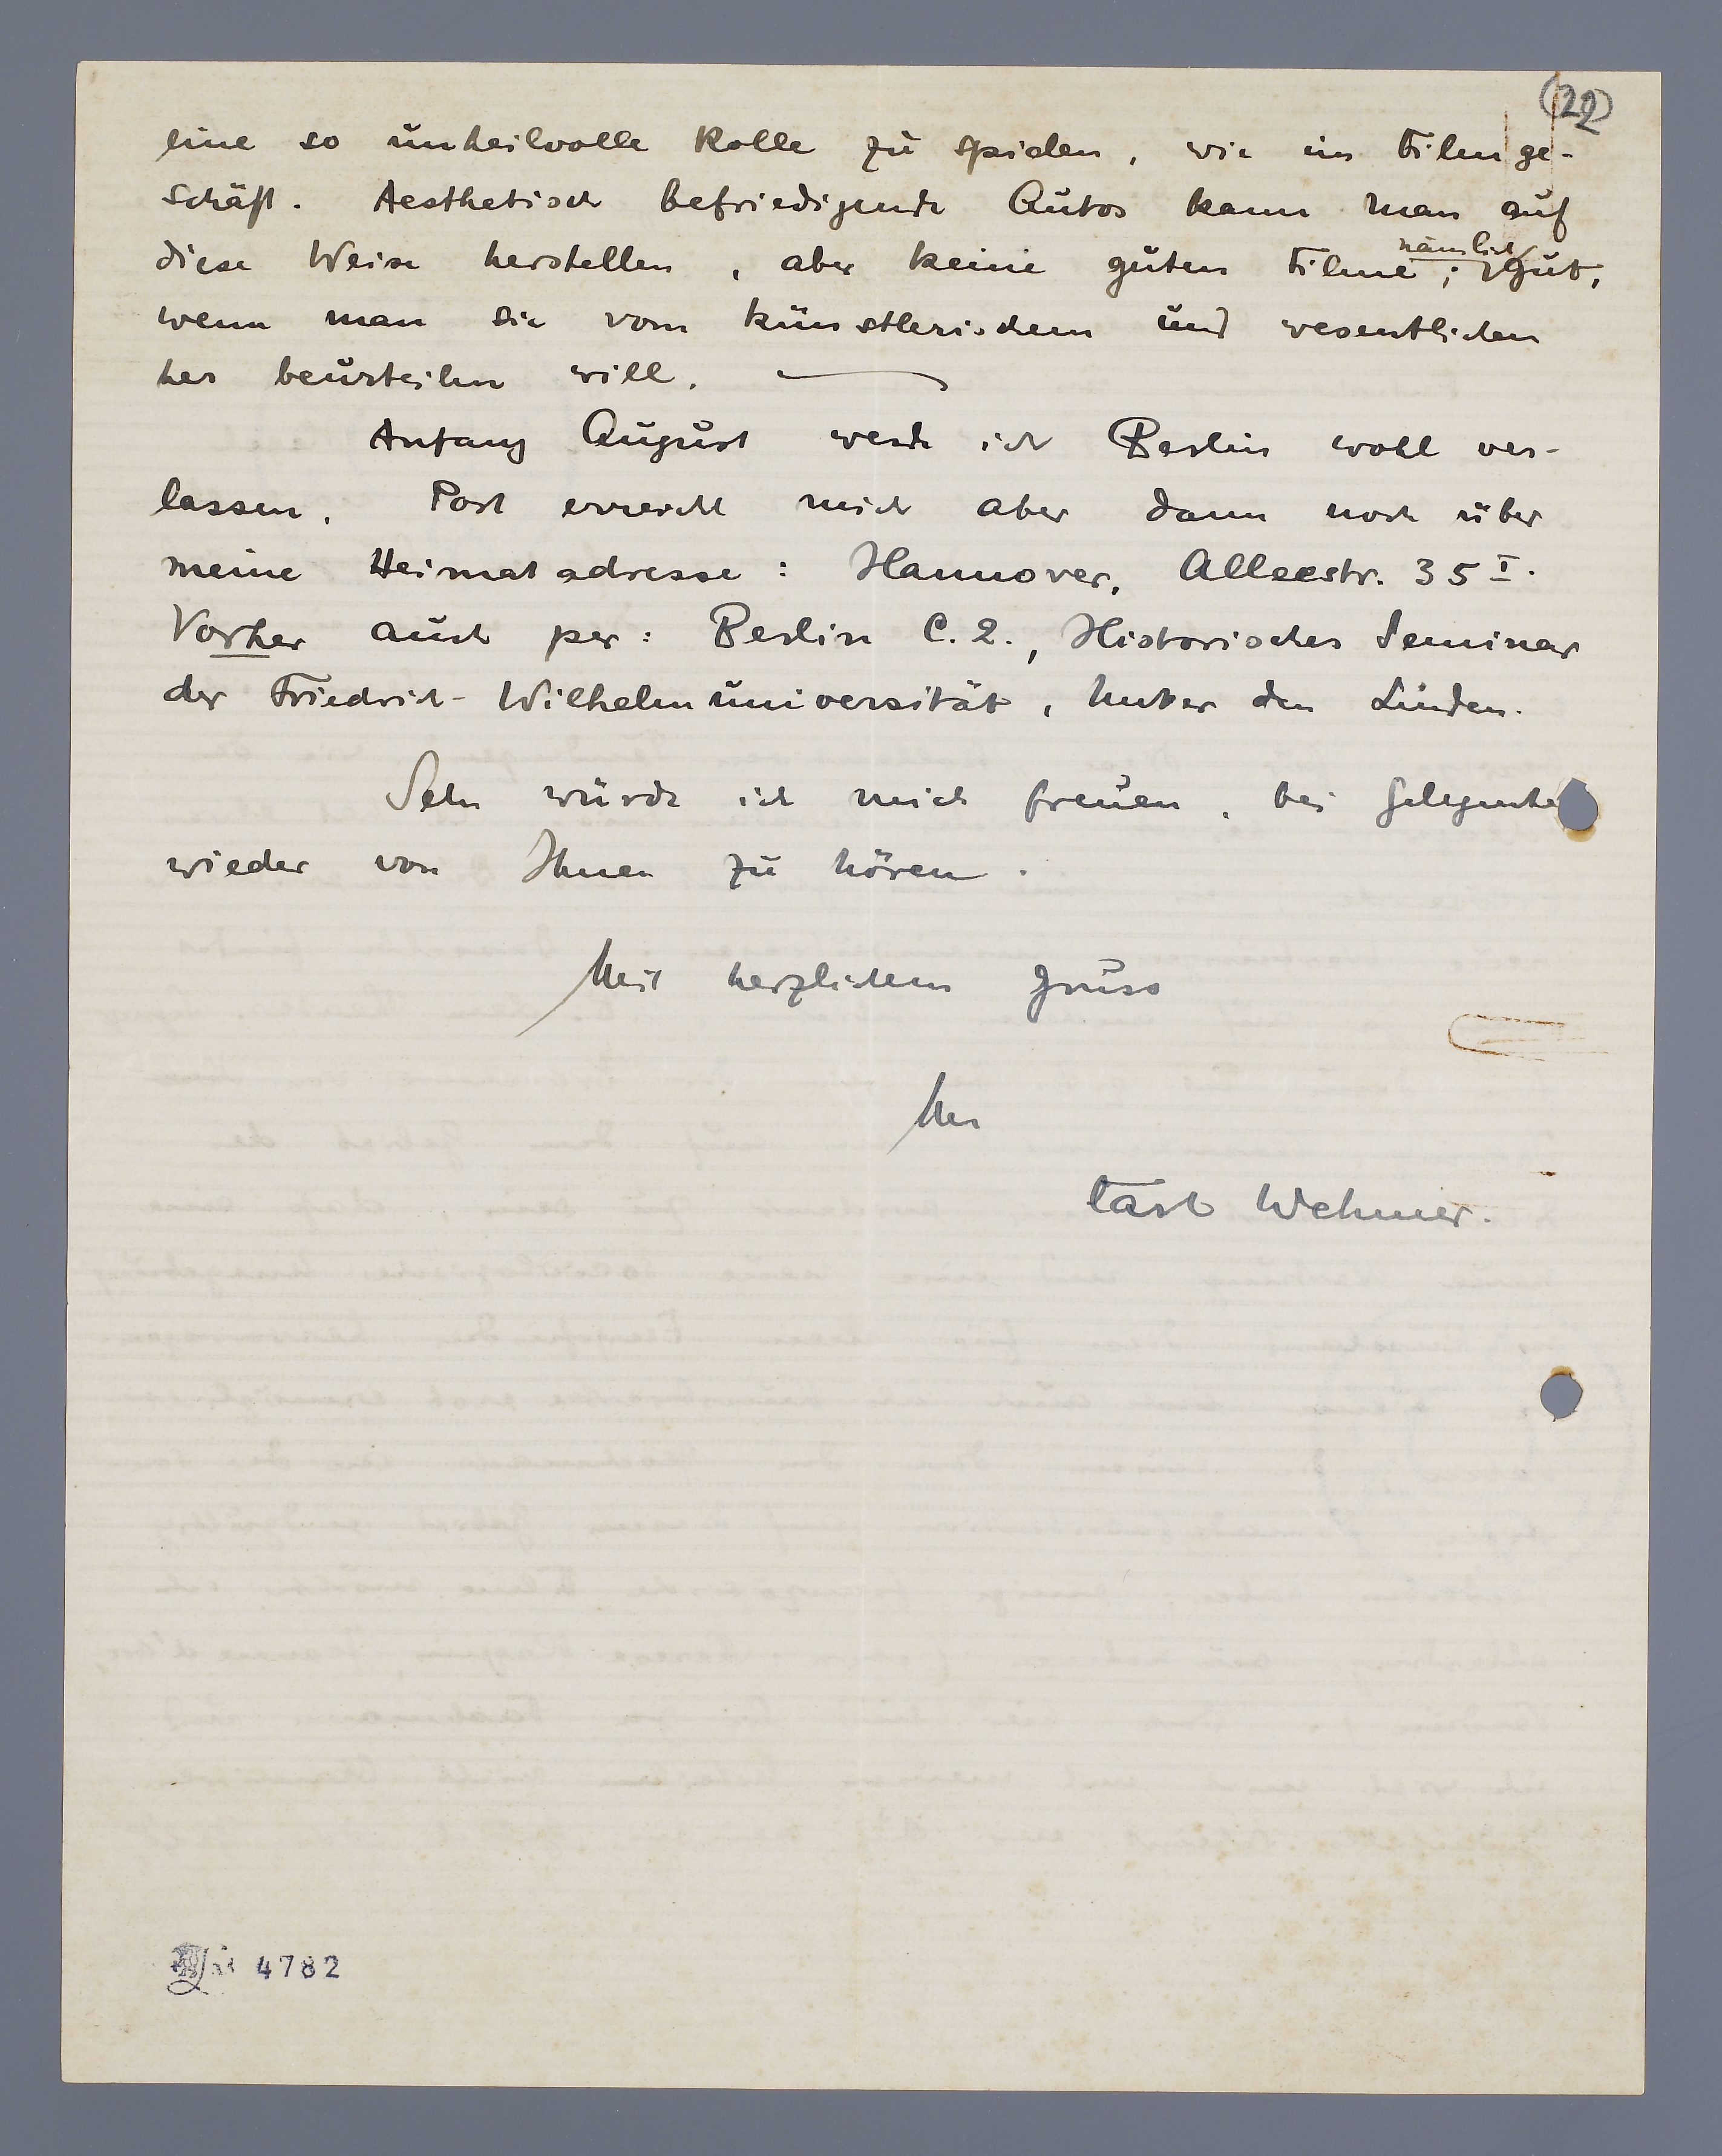 22
eine so unheilvolle Rolle zu spielen, wie im Filmge-
schäft. Aesthetisch befriedigende Autos kann man auf
diese Weise herstellen, aber keine guten Filme; nämlich gut,
wenn man sie vom künstlerischem und wesentlichen
her beurteilen will. —
Anfang August werde ich Berlin wohl ver-
lassen. Post erreicht mich aber dann noch über
meine Heimatadresse: Hannover, Alleestr. 35 I.
Vorher auch per: Berlin C. 2., Historisches Seminar
der Friedrich-Wilhelmuniversität, Unter den Linden.
Sehr würde ich mich freuen, bei Gelegenhei
wieder von Ihnen zu hören.
Mit herzlichem Gruss
Ihr
Wehmer.
4782